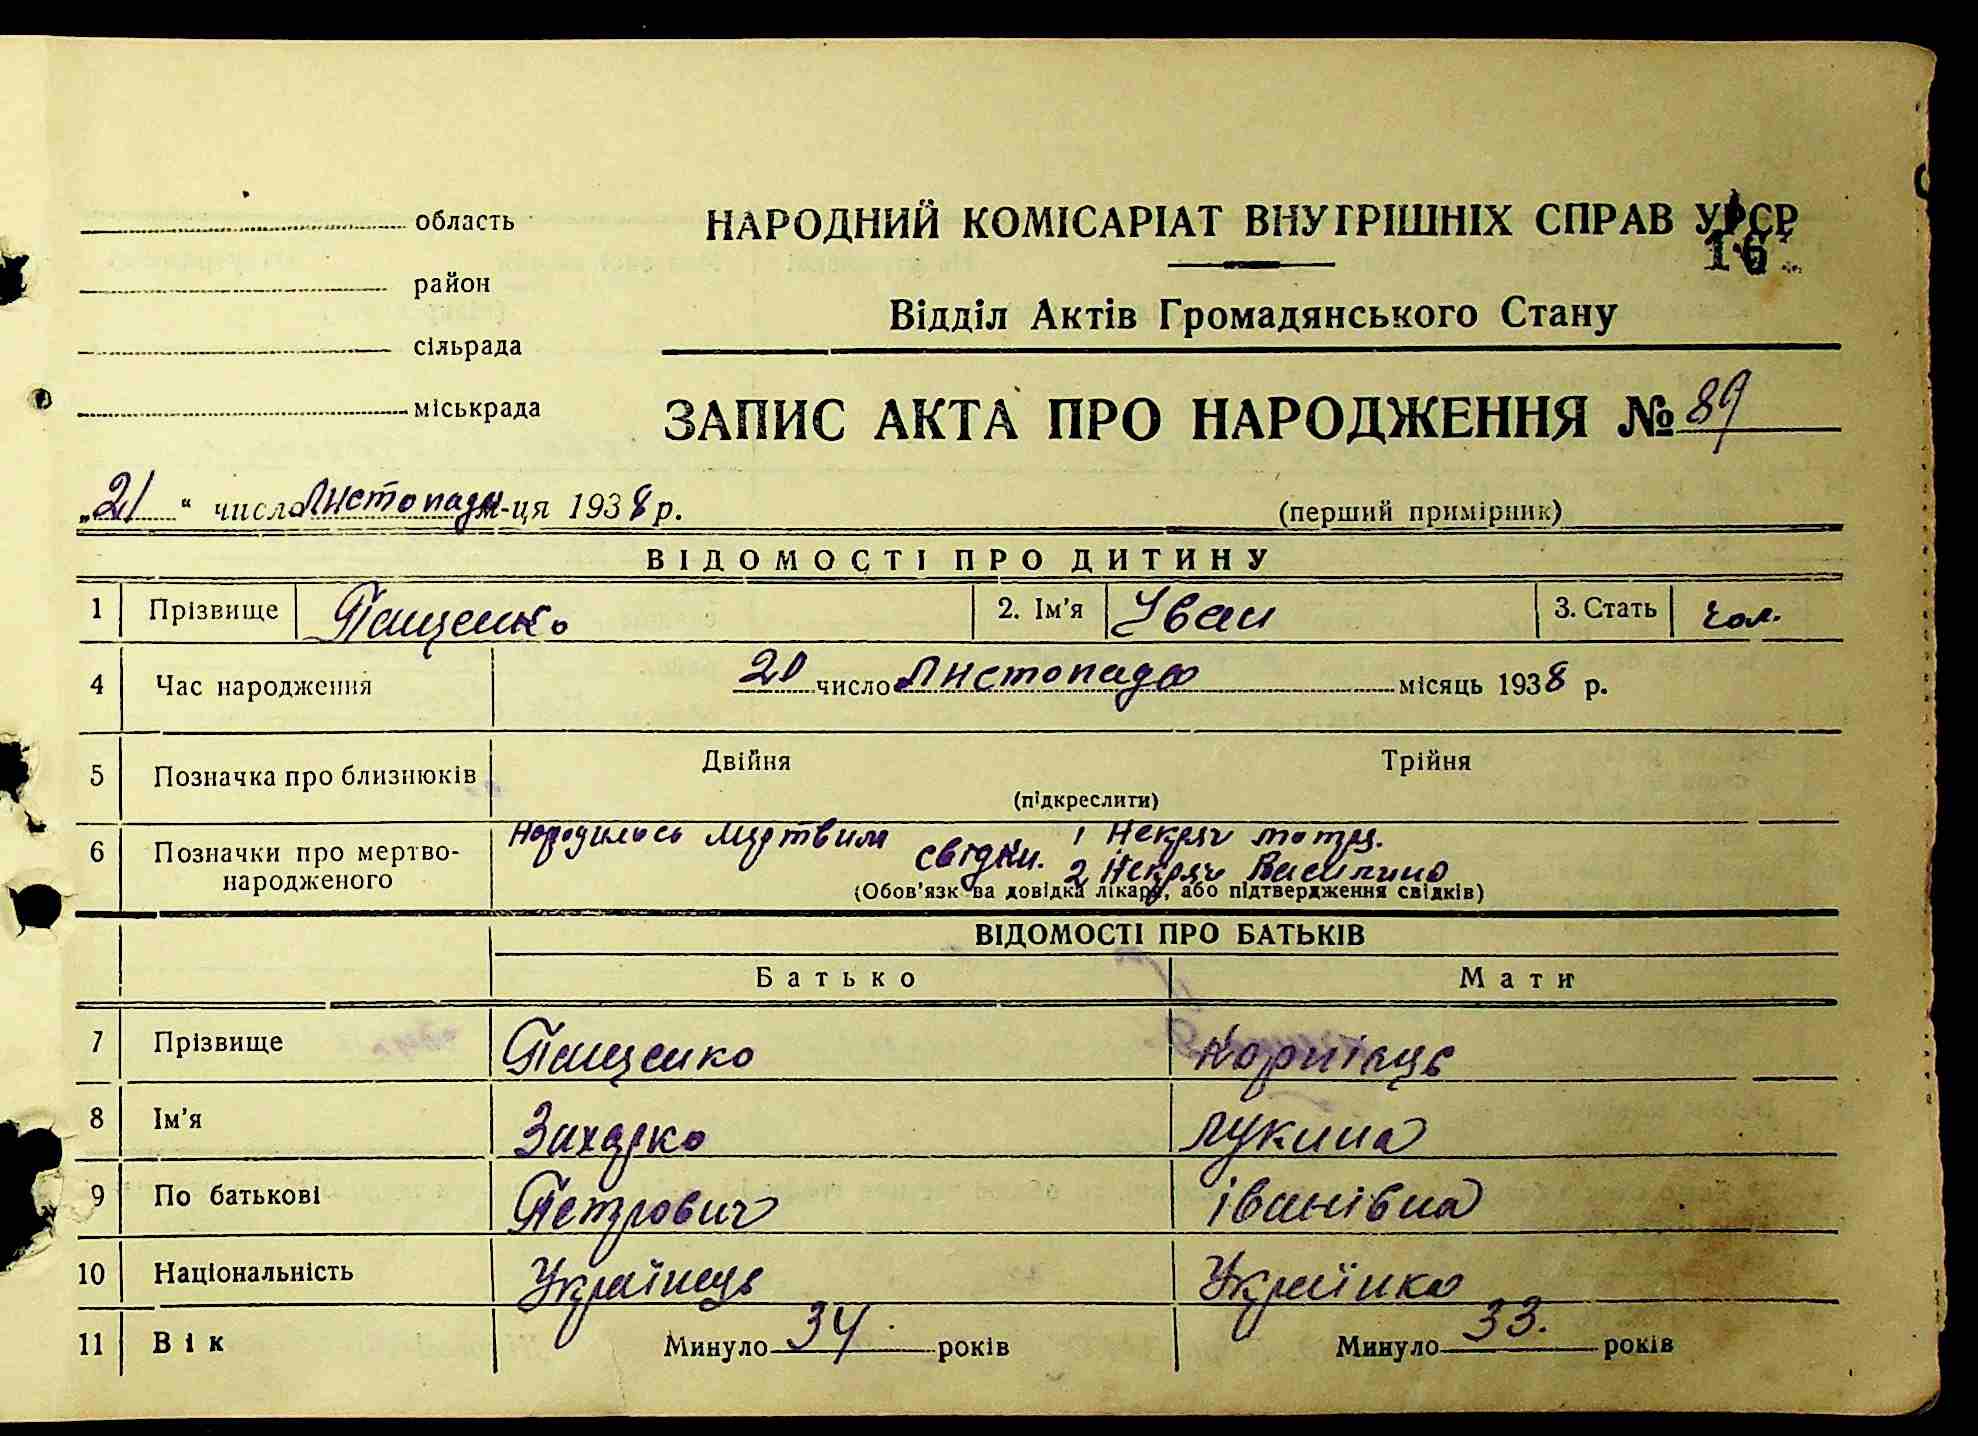 область
район
сільрада
міськрада
НАРОДНИЙ КОМІСАРІАТ ВНУТРІШНІХ СПРАВ УРСР
16
Відділ Актів Громадянського Стану
ЗАПИС АКТА ПРО НАРОДЖЕННЯ № 89
„21" число Листопада м-ця 1938 р.
(перший примірник)
ВІДОМОСТІ ПРО ДИТИНУ
1 Прізвище Пащенко 2. Ім'я Іван 3. Стать чол.
4 Час народження 20 число Листопада місяць 1938 р.
5 Позначка про близнюків Двійня Трійня
(підкреслити)
6 Позначки про мертвонародженого
Народилось мертвим свідки. 1 Некряч
2 Некряч Василина
(Обов'язкова довідка лікаря, або підтвердження свідків)
ВІДОМОСТІ ПРО БАТЬКІВ
Батько Мати
7 Прізвище Пащенко Корнієць
8 Ім'я Захарко Лукина
9 По батькові Петрович Іванівна
10 Національність Українець Українка
11 Вік Минуло 34 років Минуло 33. років